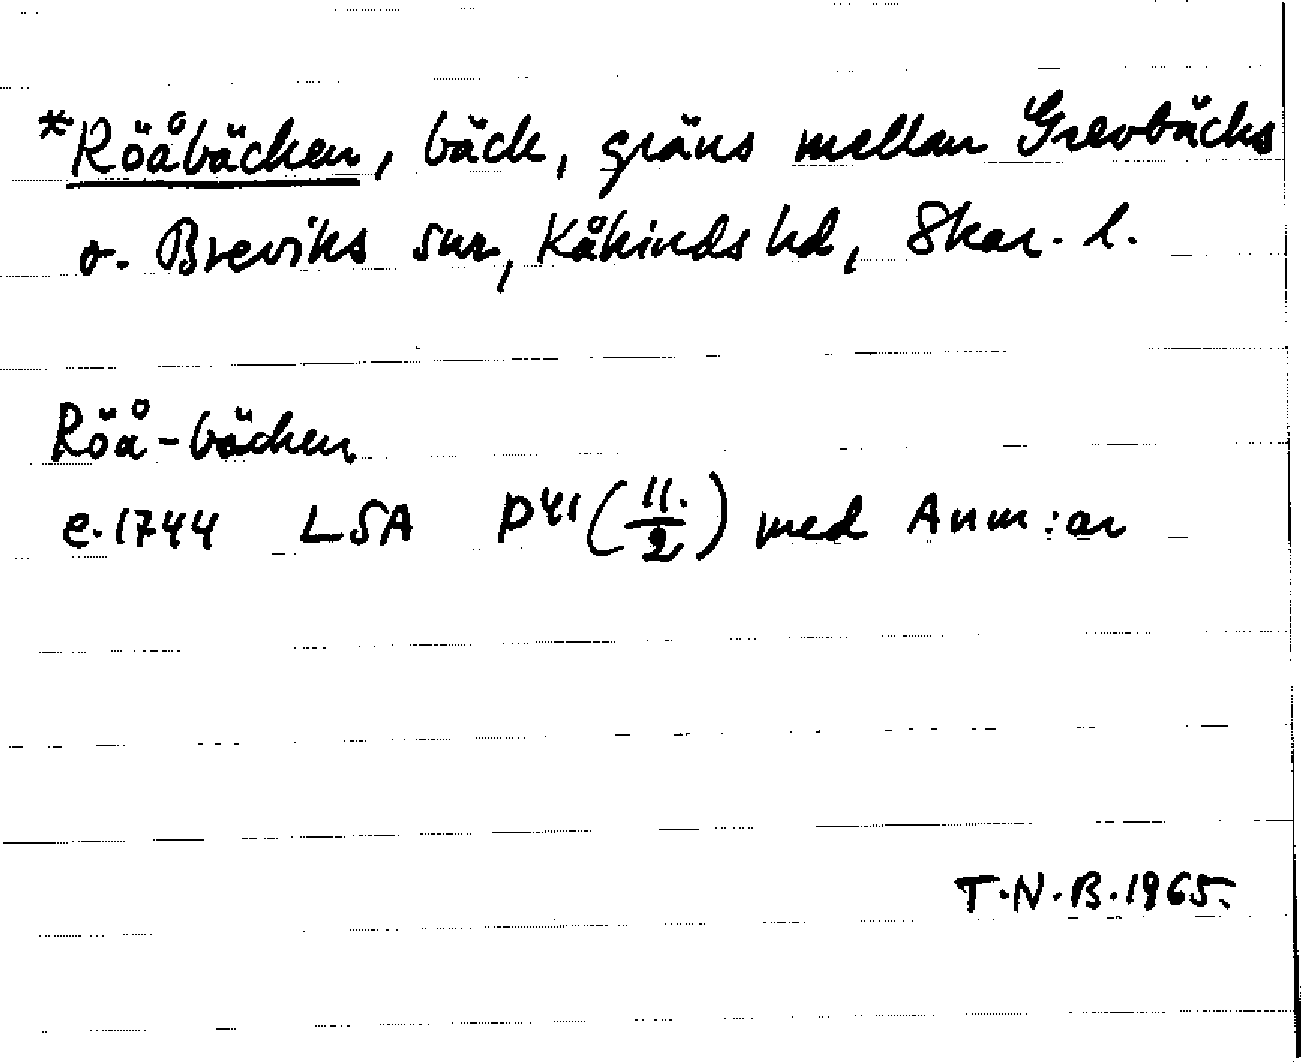 *Röåbäcken, bäck, gräns mellan Grevbäcks
o. Breviks snr, Kåkinds hd, Skar. l.
Röå-bäcken
e. 1744 LSA P41 (11./2) med Anm:ar
T.N.B. 1965.